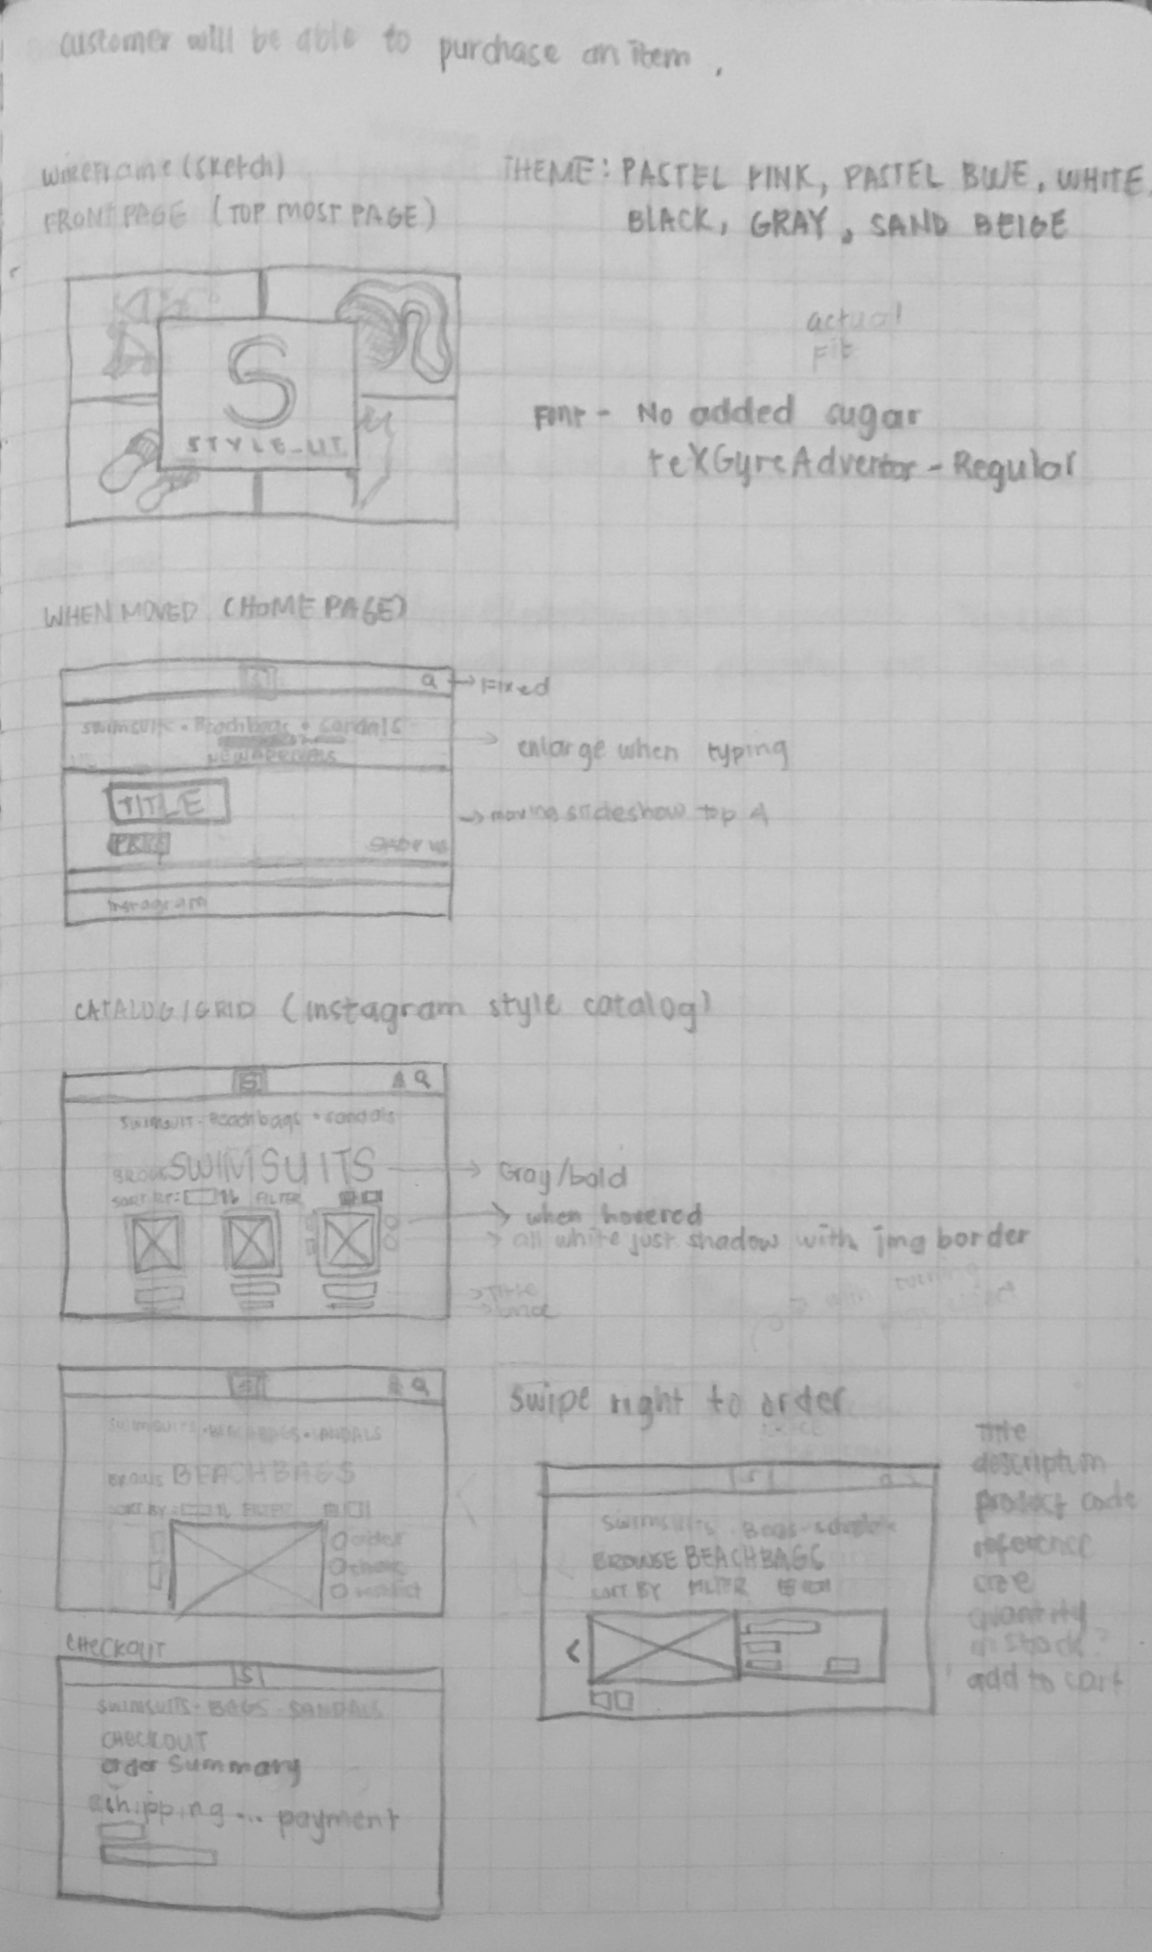 customer will be able to purchase an item.
wireframe (sketch)
FRONT PAGE (TOP MOST PAGE)
THEME: PASTEL PINK, PASTEL BLUE, WHITE,
BLACK, GRAY, SAND BEIGE
S
STYLE_LIT
actual
Fit
Font - No added sugar
teXGyreAdventor - Regular
WHEN MOVED (HOME PAGE)
→ Fixed
swimsuits • Beachbags • sandals
NEW ARRIVALS
→ enlarge when typing
TITLE
→ moving slideshow top 4
Instagram
CATALOG/GRID (Instagram style catalog)
S
swimsuit • Beachbags • sandals
SWIMSUITS
→ Gray/bold
SORT BY: FILTER
→ when hovered
→ all white just shadow with img border
→ Title
→ price
SWIMSUITS • BEACHBAGS • SANDALS
BROWSE BEACHBAGS
SORT BY: FILTER
order
share
wishlist
Swipe right to order
S
swimsuits Bags sandals
BROWSE BEACHBAGS
SORT BY FILTER
<
Title
description
product code
reference
size
quantity
in stock?
add to cart
CHECKOUT
S
SWIMSUITS • BAGS • SANDALS
CHECKOUT
order summary
shipping ... payment